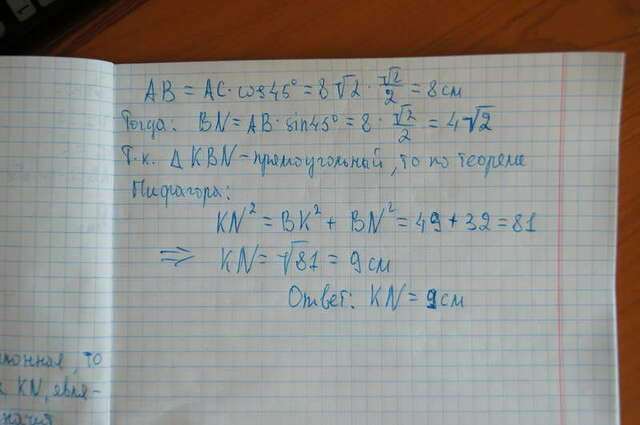 AB = AC · cos45° = 8√2 · √2/2 = 8см
Тогда: BN = AB · sin45° = 8 · √2/2 = 4√2
Т.к. Δ KBN – прямоугольный, то по теореме
Пифагора:
KN² = BK² + BN² = 49 + 32 = 81
⇒ KN = √81 = 9 см
Ответ: KN = 9см
клонная, то
KN, явля-
значит